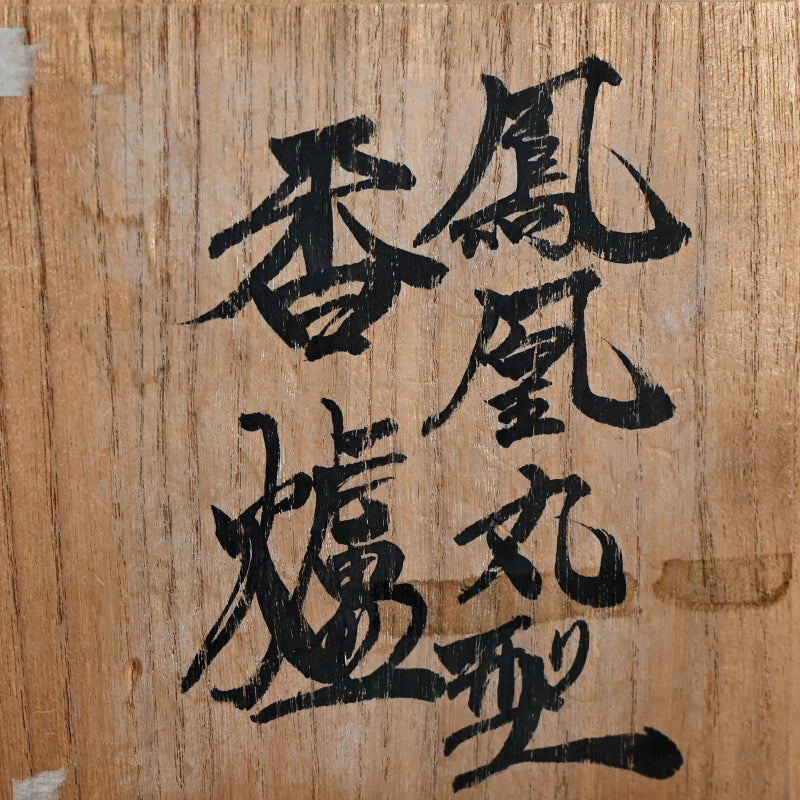 鳳凰丸型
香爐